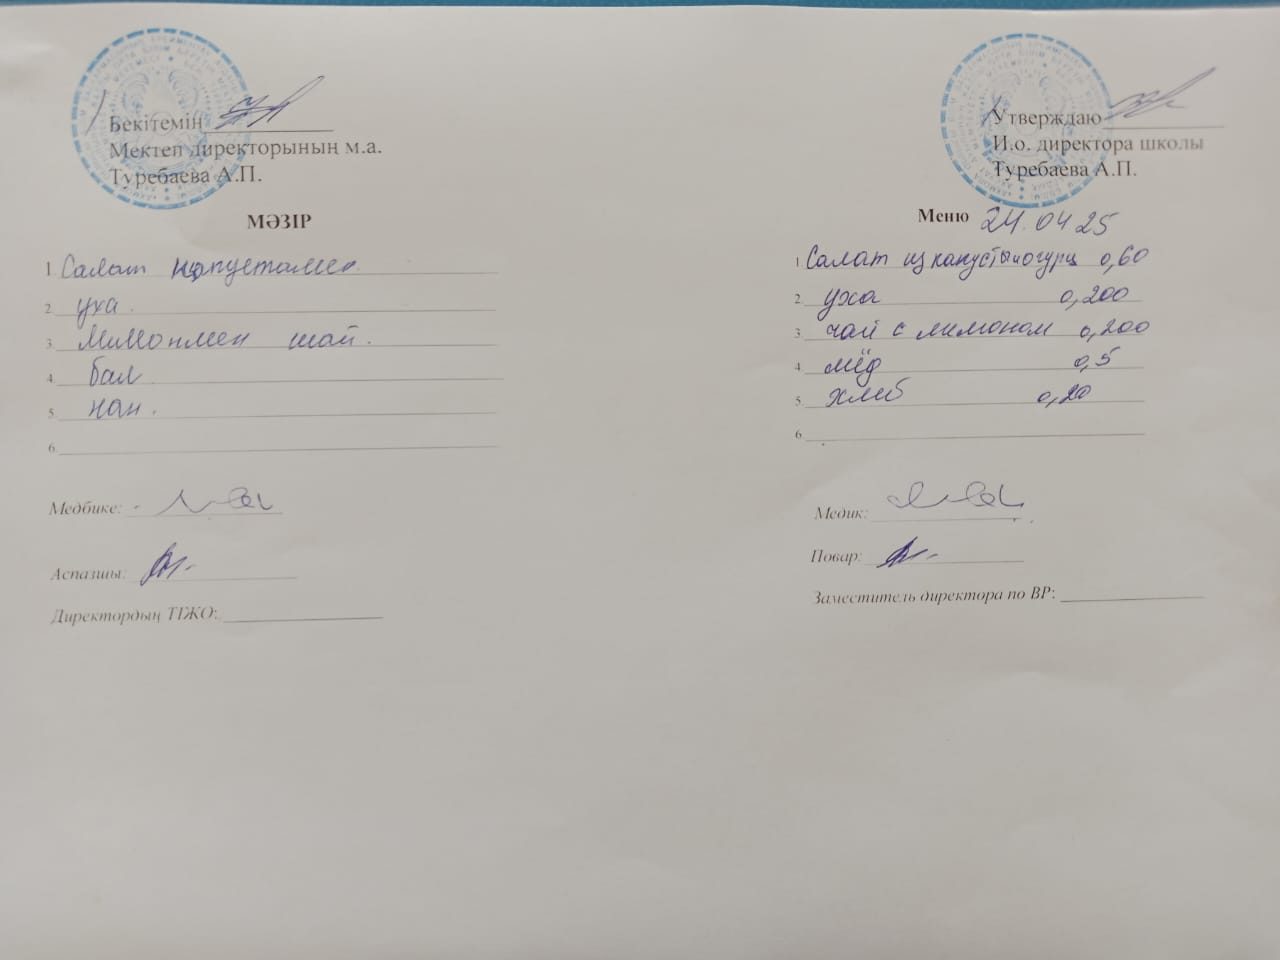 Бекітемін
Мектеп директорының м.а.
Туребаева А.П.
МӘЗІР
1. Салат капустамен.
2. уха.
3. Лимонмен шай.
4. бал.
5. нан.
6.
Медбике:
Аспазшы:
Директордың ТІЖО:
Утверждаю
И.о. директора школы
Туребаева А.П.
Меню 24.04 25
1 Салат из капусты и огурц 0,60
2. уха 0,200
3. чай с лимоном 0,200
4. мёд 0,5
5. хлеб 0,20
6.
Медик:
Повар:
Заместитель директора по ВР: